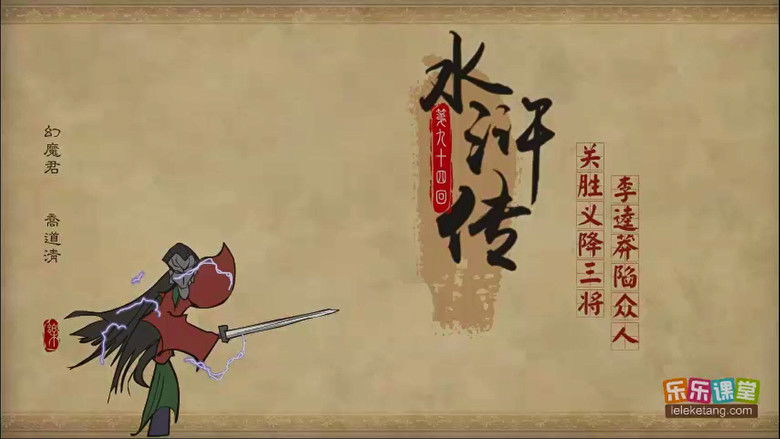 水浒传
第九十四回
关胜义降三将
李逵莽陷众人
幻魔君 喬道清
乐乐课堂
leleketang.com